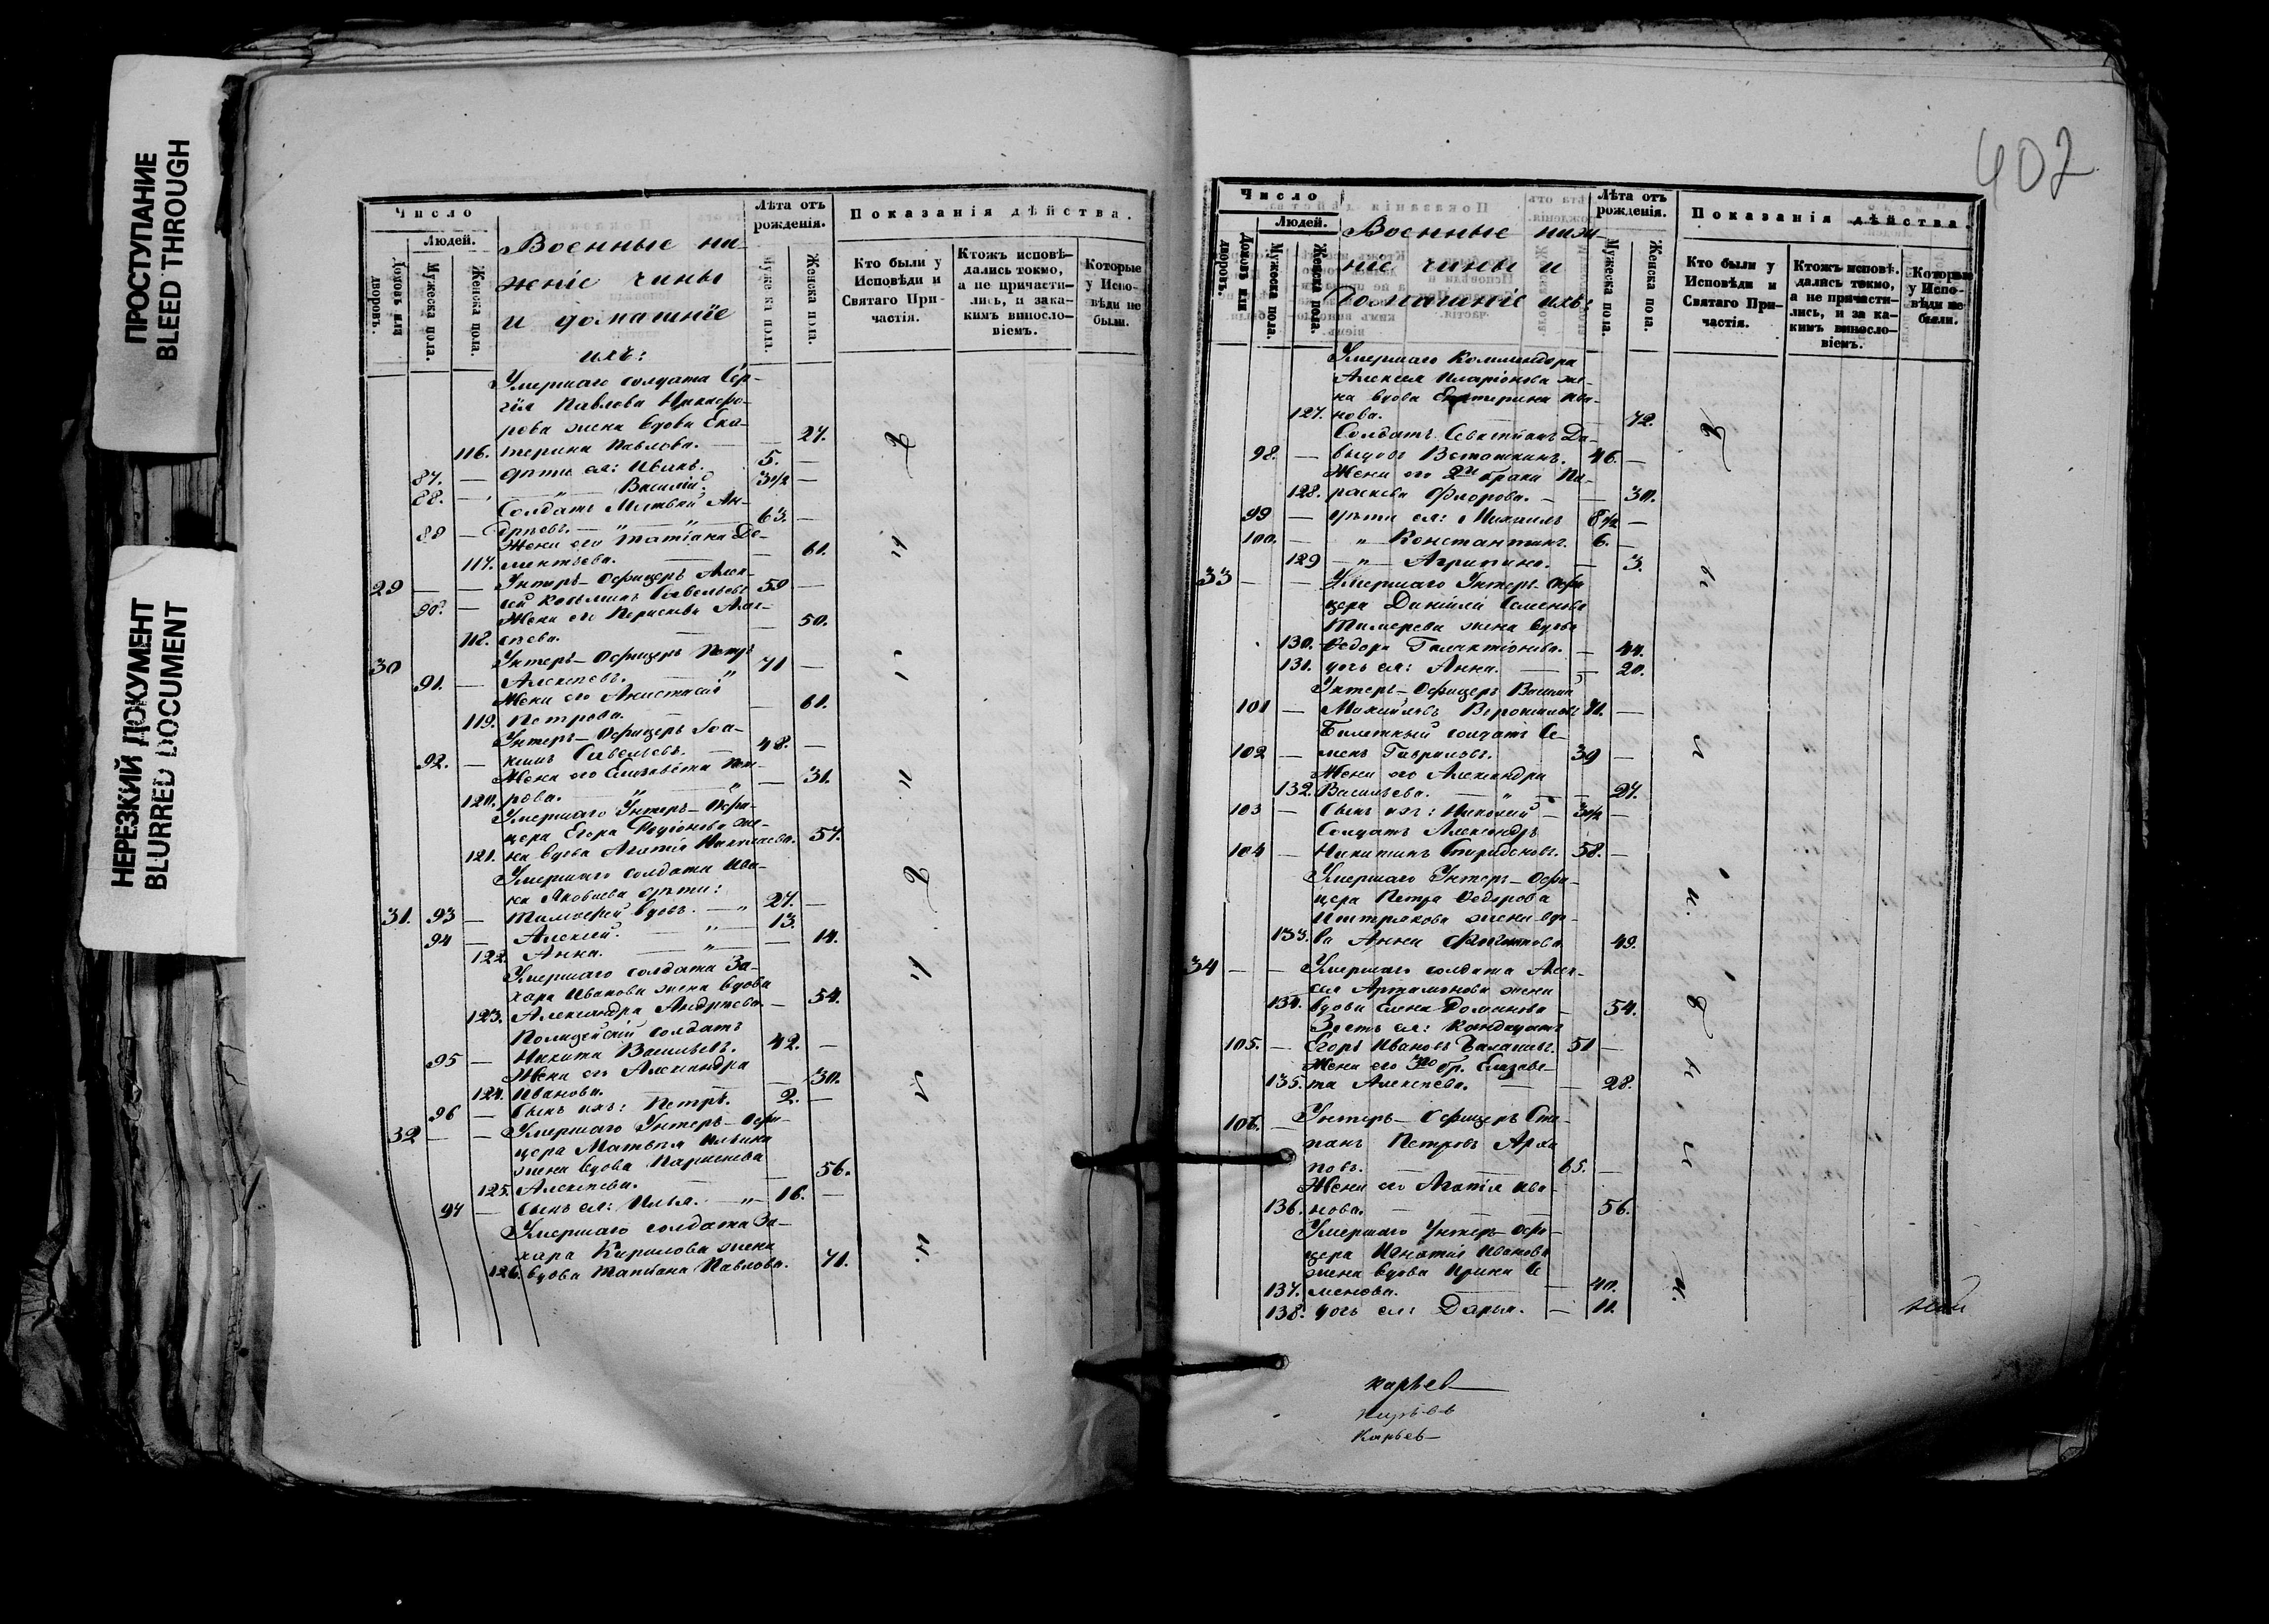 ПРОСТУПАНИЕ
BLEED THROUGH
НЕРЕЗКИЙ ДОКУМЕНТ
BLURRED DOCUMENT
Число
Людей.
Домовъ или дворовъ.
Мужеска пола.
Женска пола.
Военные ни-
жніе чины
и домашніе
ихъ:
Лѣта отъ рожденія.
Мужеска пола.
Женска пола.
Показанія дѣйства.
Кто были у Исповѣди и Святаго Причастія.
Ктожъ исповѣ-
дались токмо,
а не причасти-
лись, и зака-
кимъ винословіемъ.
Которые у Исповѣди не были.
Умершаго солдата Сер-
гія Павлова Никифо-
рова жена вдова Ека-
116. терина Павлова. — 27.
87. — дѣти ея: Иванъ. 5. —
88. — " Василій. 3 1/2 —
Солдатъ Матвей Ан-
89 — дреевъ. — " — " — 63. —
Жена его Татіана Де-
117. ментьева. — 61.
29 — — Унтеръ-Офицеръ Алек-
90. — сей Козьминъ Савельевъ 59 —
Жена его Параскева Алек-
118. сѣева. — 50.
30 Унтеръ-Офицеръ Петръ
91. — Алексѣевъ. — " 71 —
Жена его Анастасія
119. Петрова. — 61.
Унтеръ-Офицеръ Іоа-
92. — кимъ Савельевъ. — 48. —
Жена его Елизавета Пет-
120. рова. " " — 31.
Умершаго Унтеръ-Офи-
цера Егора Родіонова же-
121. на вдова Агафія Николаева. 57.
Умершаго солдата Ива-
на Яковлева дѣти:
31. 93 — Тимофей вдовъ. — " 27. —
94 — Алексей. — " — 13.
122. Анна. — " — 14.
Умершаго солдата За-
хара Иванова жена вдова
123. Александра Андреева. — 54.
Полицейскій солдатъ
95 — Никита Васильевъ. 42. —
Жена его Александра
124. Иванова. — 30.
96 — Сынъ ихъ: Петръ. 2. —
32 — — Умершаго Унтеръ-Офи-
цера Матвея Ильина
жена вдова Параскева
125. Алексѣева. — 56.
97 — Сынъ ея: Илья. — " — 16. —
Умершаго солдата За-
хара Кирилова жена
126. вдова Татіана Павлова. 71.
402
Число
Людей.
Домовъ или дворовъ.
Мужеска пола.
Женска пола.
Военные ниж-
ніе чины и
домашніе ихъ:
Лѣта отъ рожденія.
Мужеска пола.
Женска пола.
Показанія дѣйства.
Кто были у Исповѣди и Святаго Причастія.
Ктожъ исповѣ-
дались токмо,
а не причасти-
лись, и за ка-
кимъ винословіемъ.
Которые у Исповѣди не были.
Умершаго
Алексея Иларіонова же-
на вдова Екатерина Ива-
127. нова. — 72.
Солдатъ Севастьянъ Да-
98. — выдовъ 46. —
Жена его 2го брака Па-
128. раскева Фролова. — — 30.
99 — дѣти ея: Михаилъ 8 1/2 —
100. — " Константинъ. 6. —
129 — " — Агрипина. — 3.
33 — — Умершаго Унтеръ-Офи-
цера Даніила Семенова
жена вдова
130. Ѳедора Галактіонова. — 44.
131. дочь ея: Анна. — — 20.
Унтеръ-Офицеръ Василій
101 — Михайловъ 71. —
Билетный солдатъ Се-
102 — менъ Гавриловъ. 39 —
Жена его Александра
132. Васильева. — " — — 27.
103 — Сынъ ихъ: Николай — 3 1/2 —
Солдатъ Александръ
104 — Никитинъ Спиридоновъ. 58. —
Умершаго Унтеръ-Офи-
цера Петра Ѳедорова
жена вдо-
133. ва Анна 49.
34 — — Умершаго солдата Алек-
сея Артамонова жена
134. вдова Елена — 54.
Зять ея:
105. — Егоръ Ивановъ Балашовъ. 51 —
Жена его 3го бр. Елизаве-
135. та Алексѣева. — — 28.
106. — Унтеръ-Офицеръ Сте-
панъ Петровъ Архи
повъ. — — 65. —
Жена его Агафія Ива-
136. нова. — — 56.
Умершаго Унтеръ-Офи-
цера Игнатія Иванова
жена вдова Ирина Се
137. менова. — 40.
138. дочь ея: Дарья. — 11.